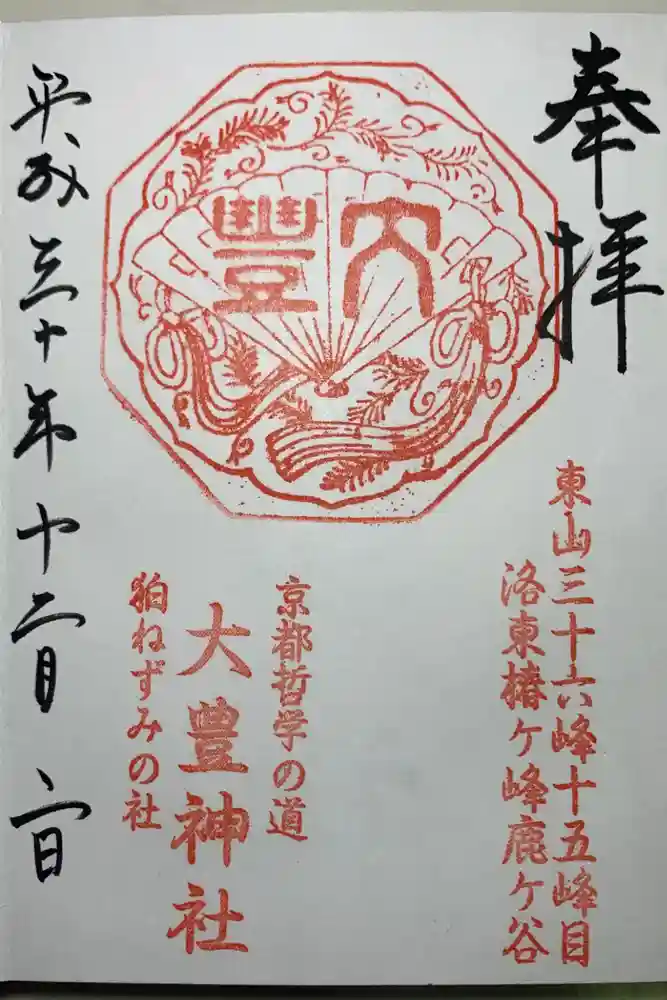 奉拝
東山三十六峰十五峰目
洛東椿ケ峰鹿ケ谷
大豊
京都哲学の道
大豊神社
狛ねずみの社
平成三十年十二月二日